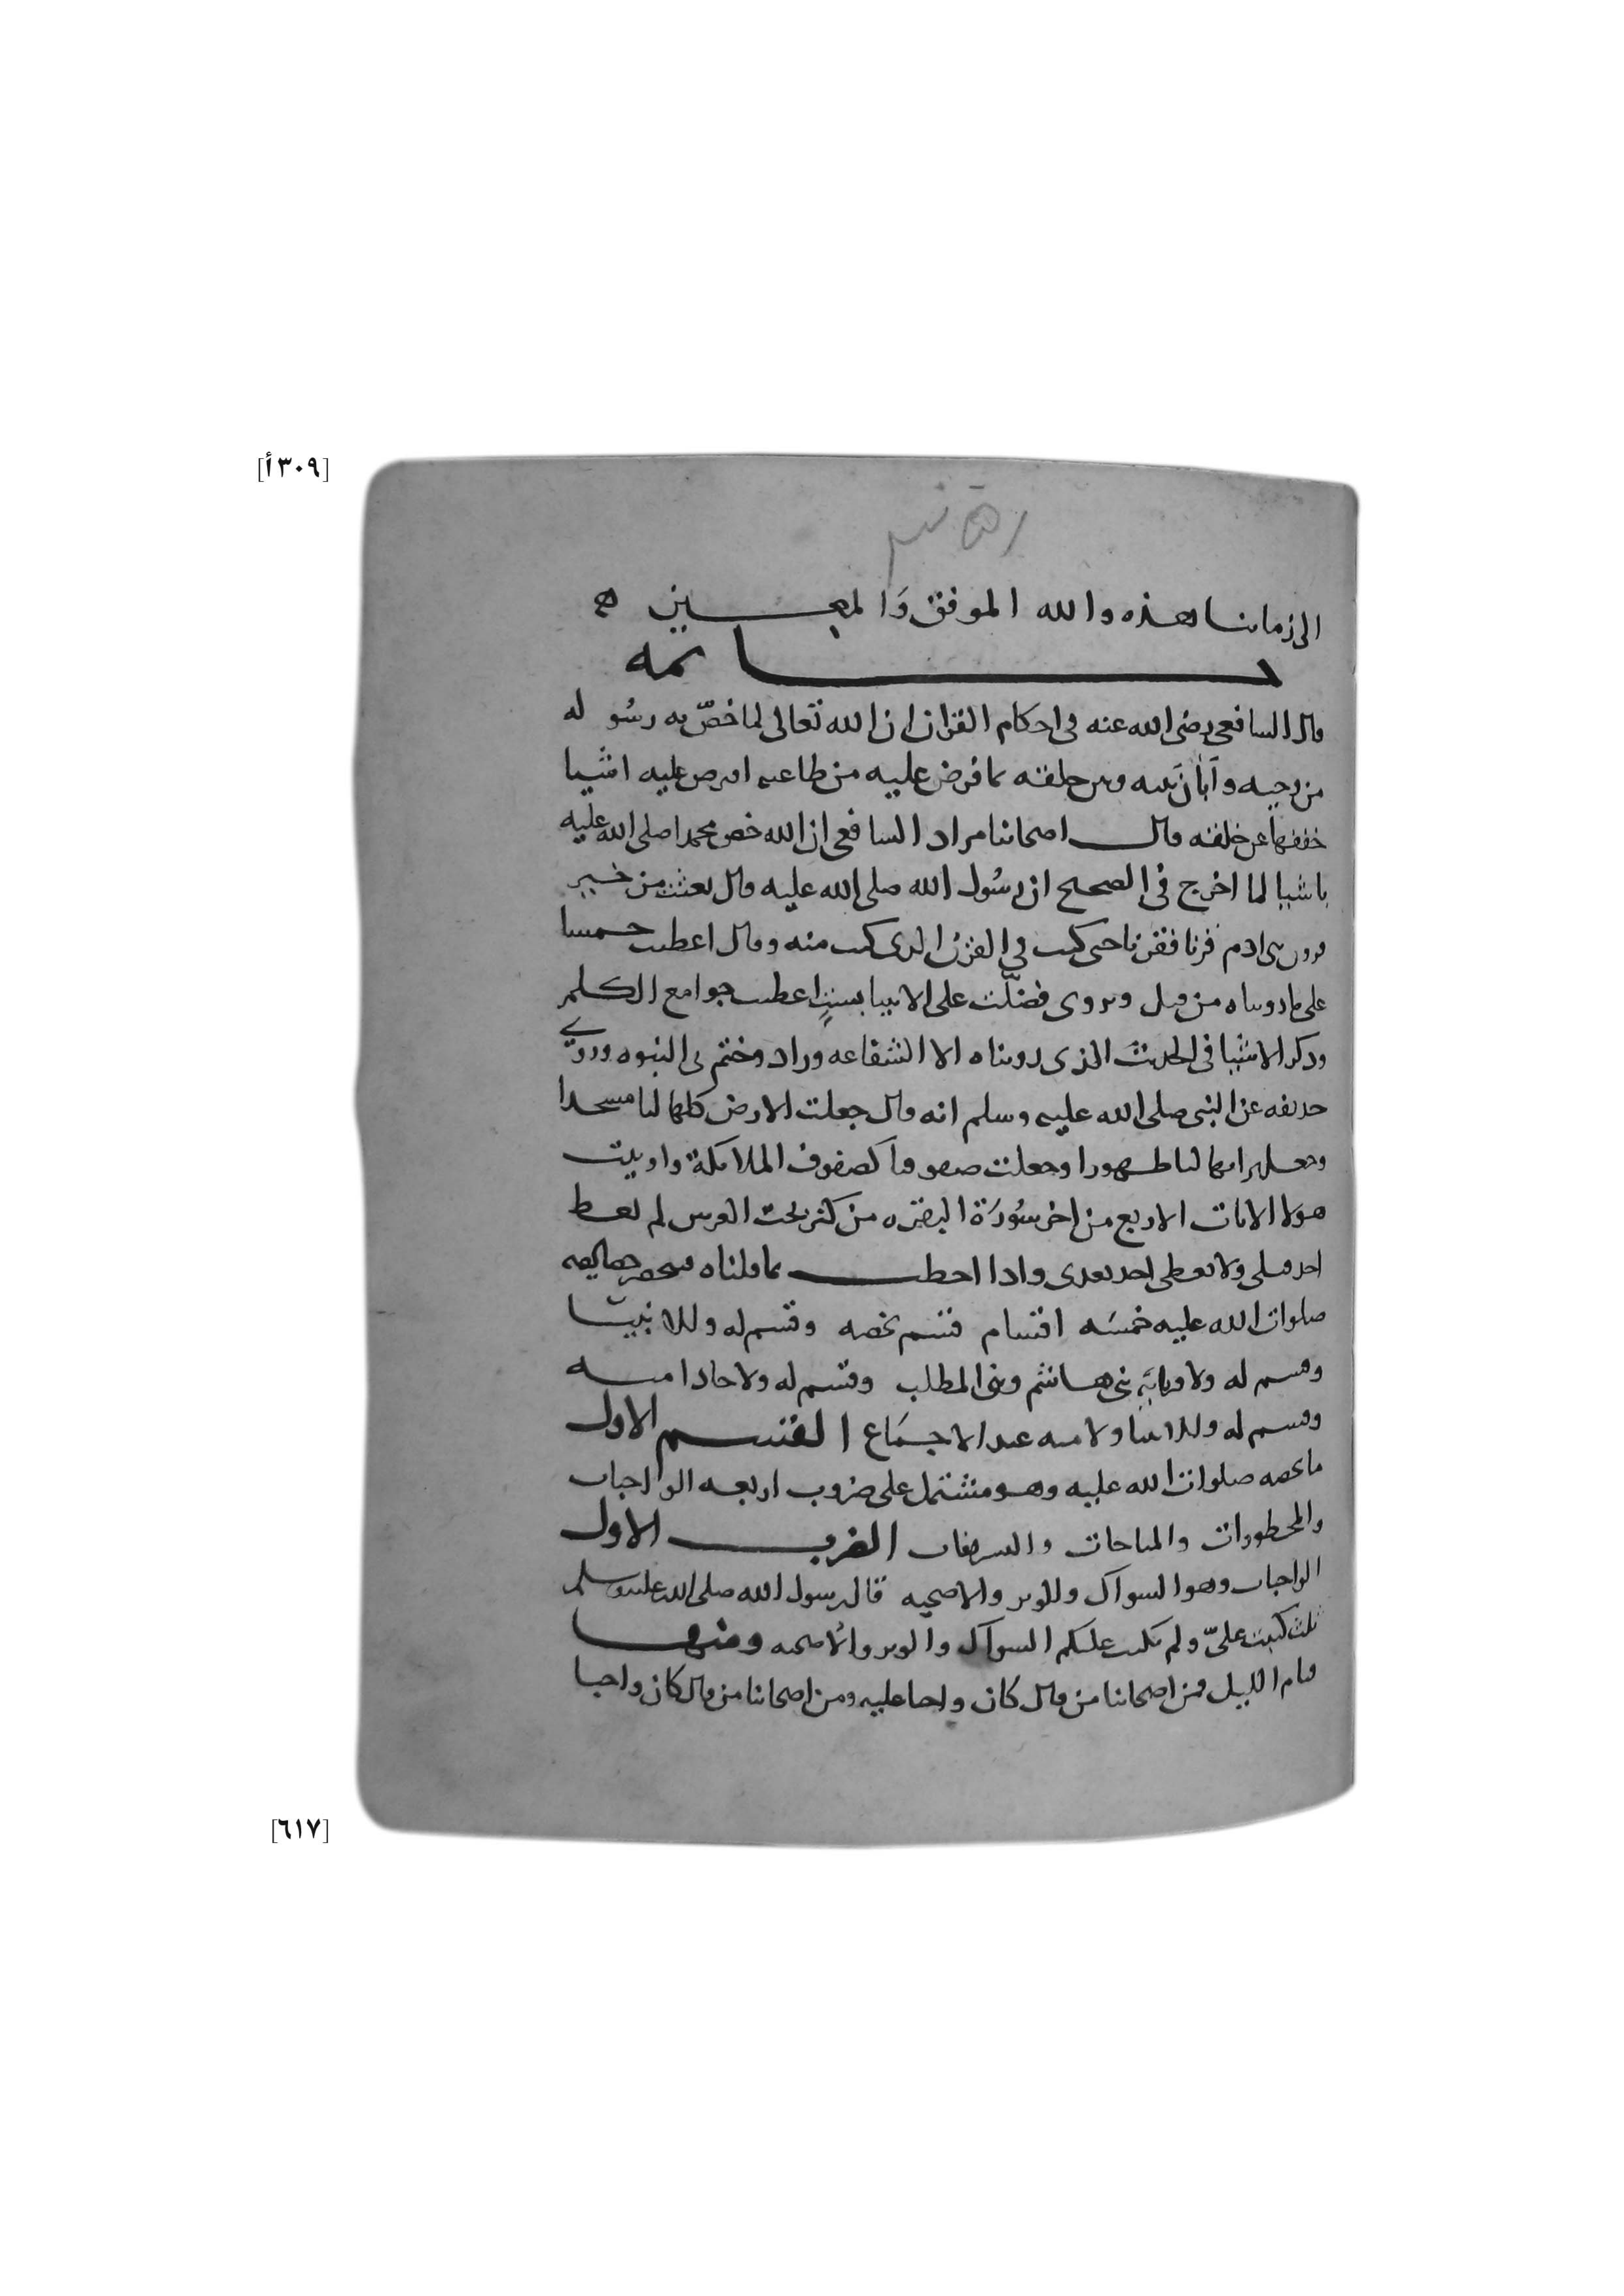 [٣٠٩أ]
الى زماننا هذه والله الموفق وَالمعين ه
خاتمه
قال الشافعي رضي الله عنه في احكام القران ان الله تعالى لما خصّ به رسُوله
من وحيه وأبان بينه وبين خلقه بما فرض عليه من طاعته افترض عليه اشيا
خففها عن خلقه قال اصحابنا مراد الشافعي ان الله خص محمدا صلى الله عليه
باشيا لما اخرج في الصحيح ان رسُول الله صلى الله عليه قال بعثت من خير
قرون بني ادم قرنا فقرنا حتى كنت في القرن الذي كنت منه وقال اعطيت خمسا
على ما رويناه من قبل ويروى فضلّت على الانبيا بستٍ اعطيت جوامع الكلم
وذكر الاشيا في الحديث الذي رويناه الا الشفاعه وزاد وختم بي النبوه وروى
حذيفه عن النبي صلى الله عليه وسلم انه قال جعلت الارض كلها لنا مسجدا
وجعل ترابها لنا طهورا وجعلت صفوفنا كصفوف الملائكة واوتيت
هولا الايات الاربع من اخر سُورَة البقره من كنز تحت العرش لم يعط
احد قبلي ولا يعطى احد بعدي واذا احطت بما قلناه فتحصر خصايصه
صلوات الله عليه خمسَه اقسام قسم يخصه وقسم له وللانبيا
وقسم له ولاقربايَه بني هاشم وبني المطلب وقسم له ولاحاد امته
وقسم له وللانبيا ولامته عند الاجمَاع القسم الاول
ما يخصه صلوات الله عليه وهو مشتمل على ضروب اربعه الواجبات
والمحظورات والمباحات والتشريفات الضرب الاول
الواجبات وهو السواك والوتر والاضحيه قال رسول الله صلى الله عليه وسلم
ثلث كتبت عليّ ولم تكتب عليكم السواك والوتر والأضحيه ومنها
قيام الليل فمن اصحابنا من قال كان واجبا عليه ومن اصحابنا من قال كان واجبا
[٦١٧]